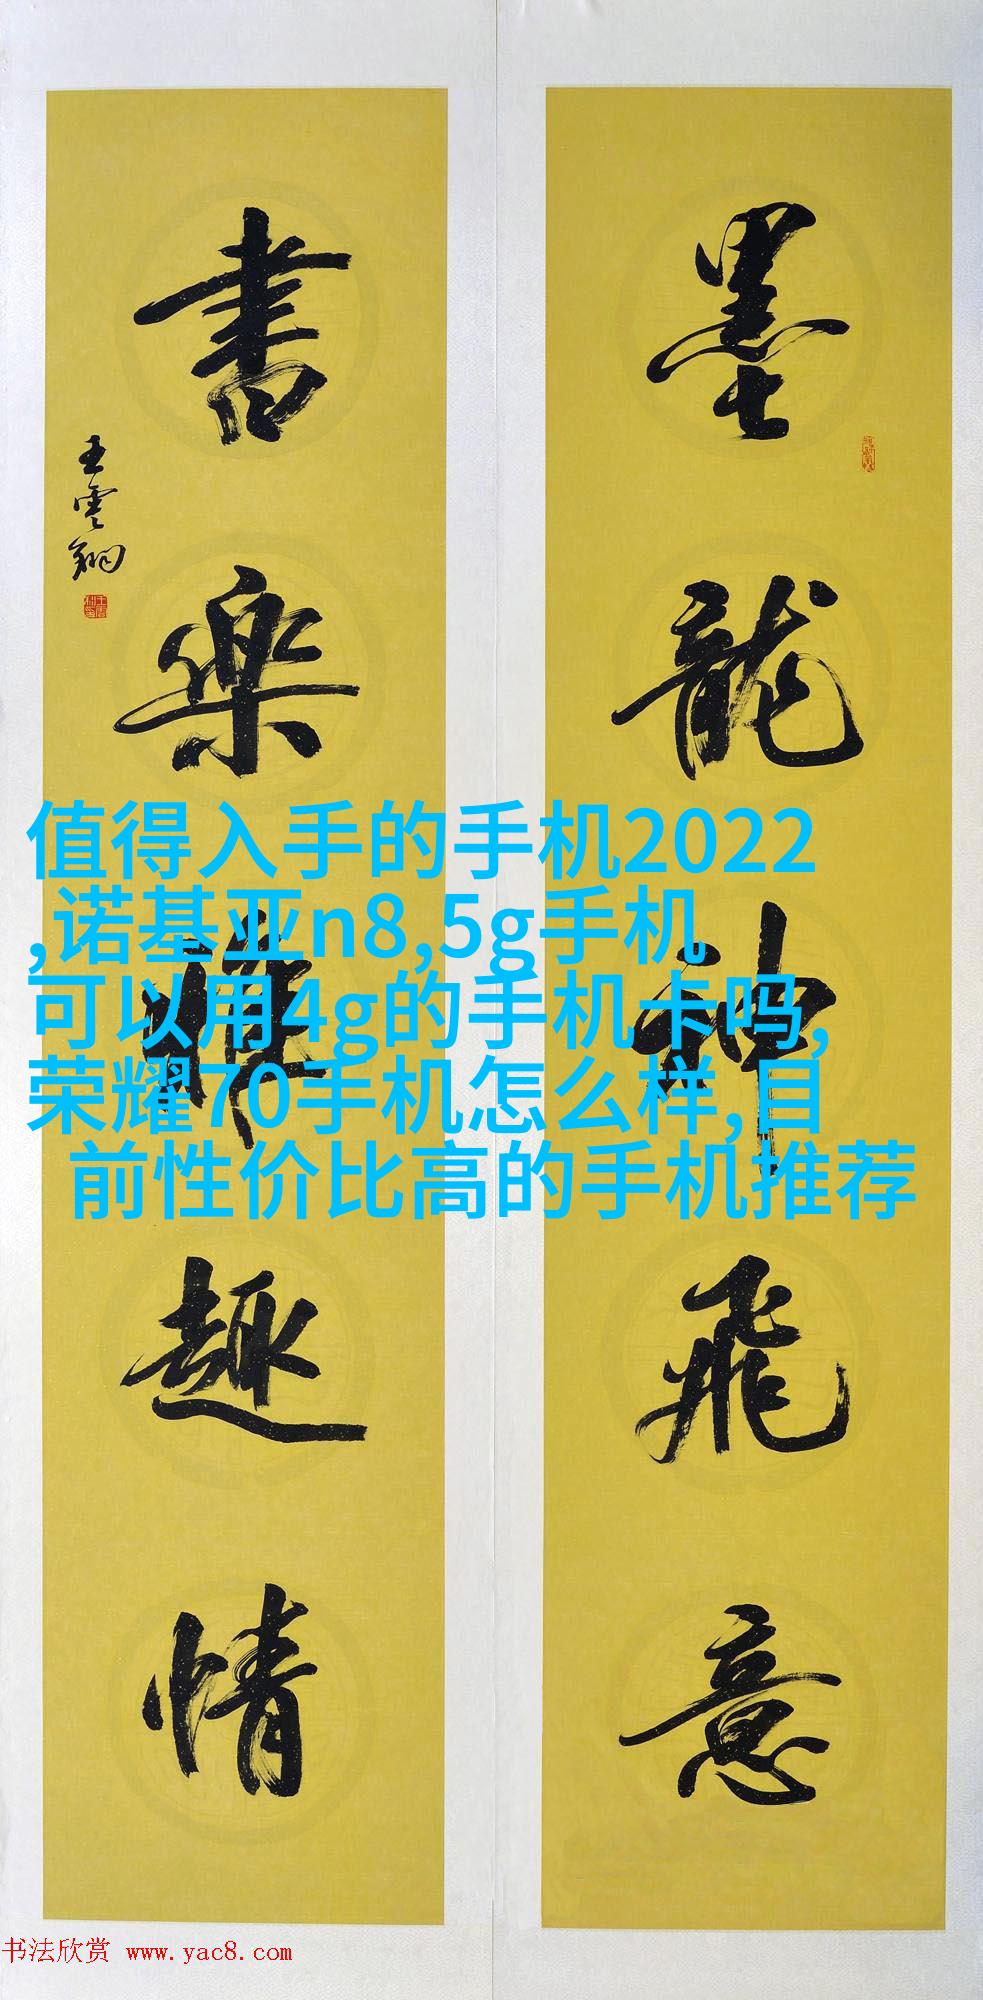 墨龍神飛意
書楽
趣情
王雲
值得入手的手机2022
,诺基亚n8,5g手机
可以用4g的手机卡吗,
荣耀70手机怎么样,目
前性价比高的手机推荐
书法欣赏 www.yac8.com